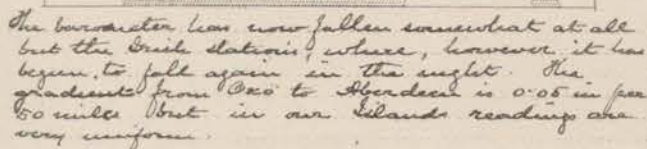 The barometer has now fallen somewhat at all
but the Irish stations, where, however it has
begun to fall again in the night. The
gradient from Oxö to Aberdeen is 0.05 in per
50 miles but in our Islands readings are
very uniform.